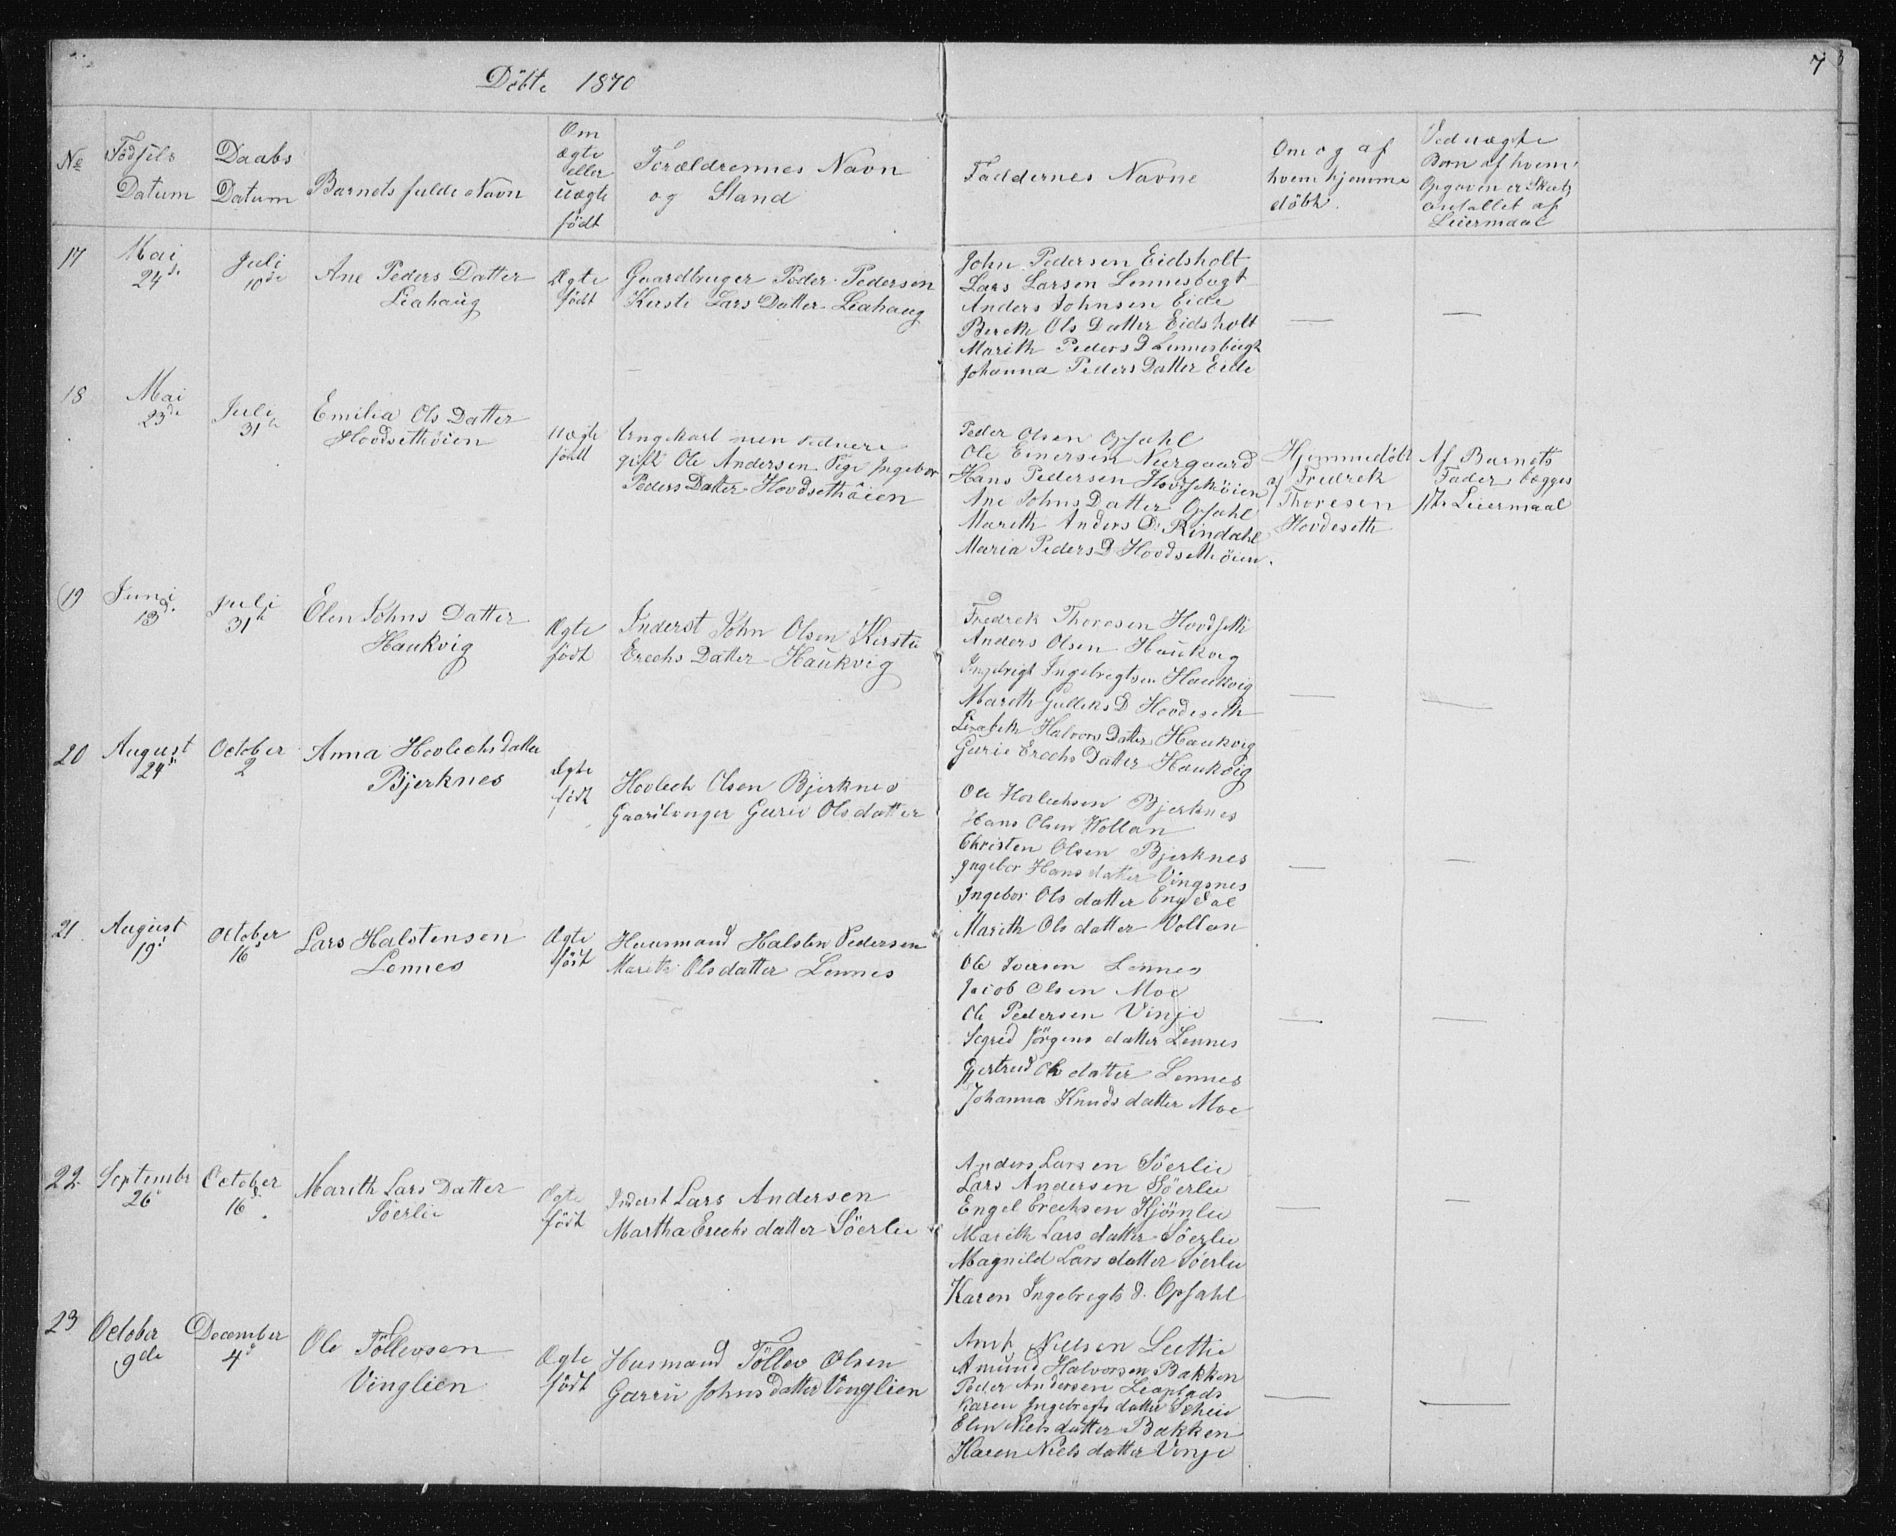 Döbte 1870
7
No
Födsels Datum
Daabs Datum
Barnets fulde Navn
Om ægte eller uægte födt
Forældrennes Navn og Stand
Faddernes Navne
Om og af hvem hjemme döbt.
Ved uægte Born af hvem Opgaven er Skeet anfallet af Leiermaal
17
Mai 24de
Juli 10de
Ane Peders Datter
Leahaug
Ægte
födt
Gaardbruger Peder Pedersen
Kirsti Lars Datter Leahaug
John Pedersen Eidsholt
Lars Larsen Lennesbugt
Anders Johnsen Eide
Bereth Ols Datter Eidsholt
Marith Peders D Lennesbugt
Johanna Peders Datter Eide
—
—
18
Mai 23de
Juli 31te
Emilia Ols Datter
Hovdsethöien
Uægte
födt
Ungekarl men
gift Ole Andersen Pige Ingebor
Peders Datter Hovdsethöien
Peder Olsen Opsahl
Ole Einersen Neergaard
Hans Pedersen Hovdsethöien
Ane Johns Datter Opsahl
Marith Anders D. Rindahl
Maria Peders D Hovdsethöien.
Hjemmedöbt
af Fredrek
Thoresen
Hovdeseth
Af Barnets
Fader begges
1te Leiermaal
19
Juni 13d.
Juli 31te
Elen Johns Datter
Haukvig
Ægte
födt
Inderst John Olsen Kirsti
Erechs Datter Haukvig
Fredrek Thoresen Hovdseth
Anders Olsen Haukvig
Ingebrigt Ingebregtsen Haukvig
Mareth Gulleks D Hovdeseth
Lisabeth Halvors Datter Haukvig
Gurie Erechs Datter Haukvig
—
—
20
August 24de
October 2
Anna Hovlechsdatter
Bjerknes
Ægte
födt
Hovlech Olsen Bjerknes
Gaardbruger Guriv Olsdatter
Ole Hovlechsen Bjerknes
Hans Olsen Wollan
Christen Olsen Bjerknes
Ingebor Hansdatter Vingsnes
Ingebor Olsdatter Engdal
Marith Olsdatter Vollan
—
—
21.
August 19de
October 16d
Lars Halstensen
Lennes
Ægte
födt
Huusmand Halsten Pedersen
Mareth Olsdatter Lennes
Ole Iversen Lennes
Jacob Olsen Moe
Ole Pedersen Vinje
Segred Jörgensdatter Lennes
Gjertrud Olsdatter Lennes
Johanna Knudsdatter Moe
—
—
22.
Septembr 26
October 16d.
Mareth Lars Datter
Soerlie
Ægte
födt
Inderst Lars Andersen
Martha Erechsdatter Söerlie
Anders Larsen Söerlie
Lars Andersen Söerlie
Engel Erechsen Kjönlie
Mareth Larsdatter Söerlie
Magnild Larsdatter Söerlie
Karen Ingebregts d. Opsahl
—
—
23
October 9de
December 4de
Ole Töllevsen
Vinglien
Ægte
födt
Husmand Töllev Olsen
Gurru Johnsdatter Vinglien
Nielsen
Amund Halvorsen Bakken
Peder Andersen Leaplads
Karen Ingebregtsdatter
Elen Nielsdatter Bakken
Karen Nielsdatter Vinje
—
—